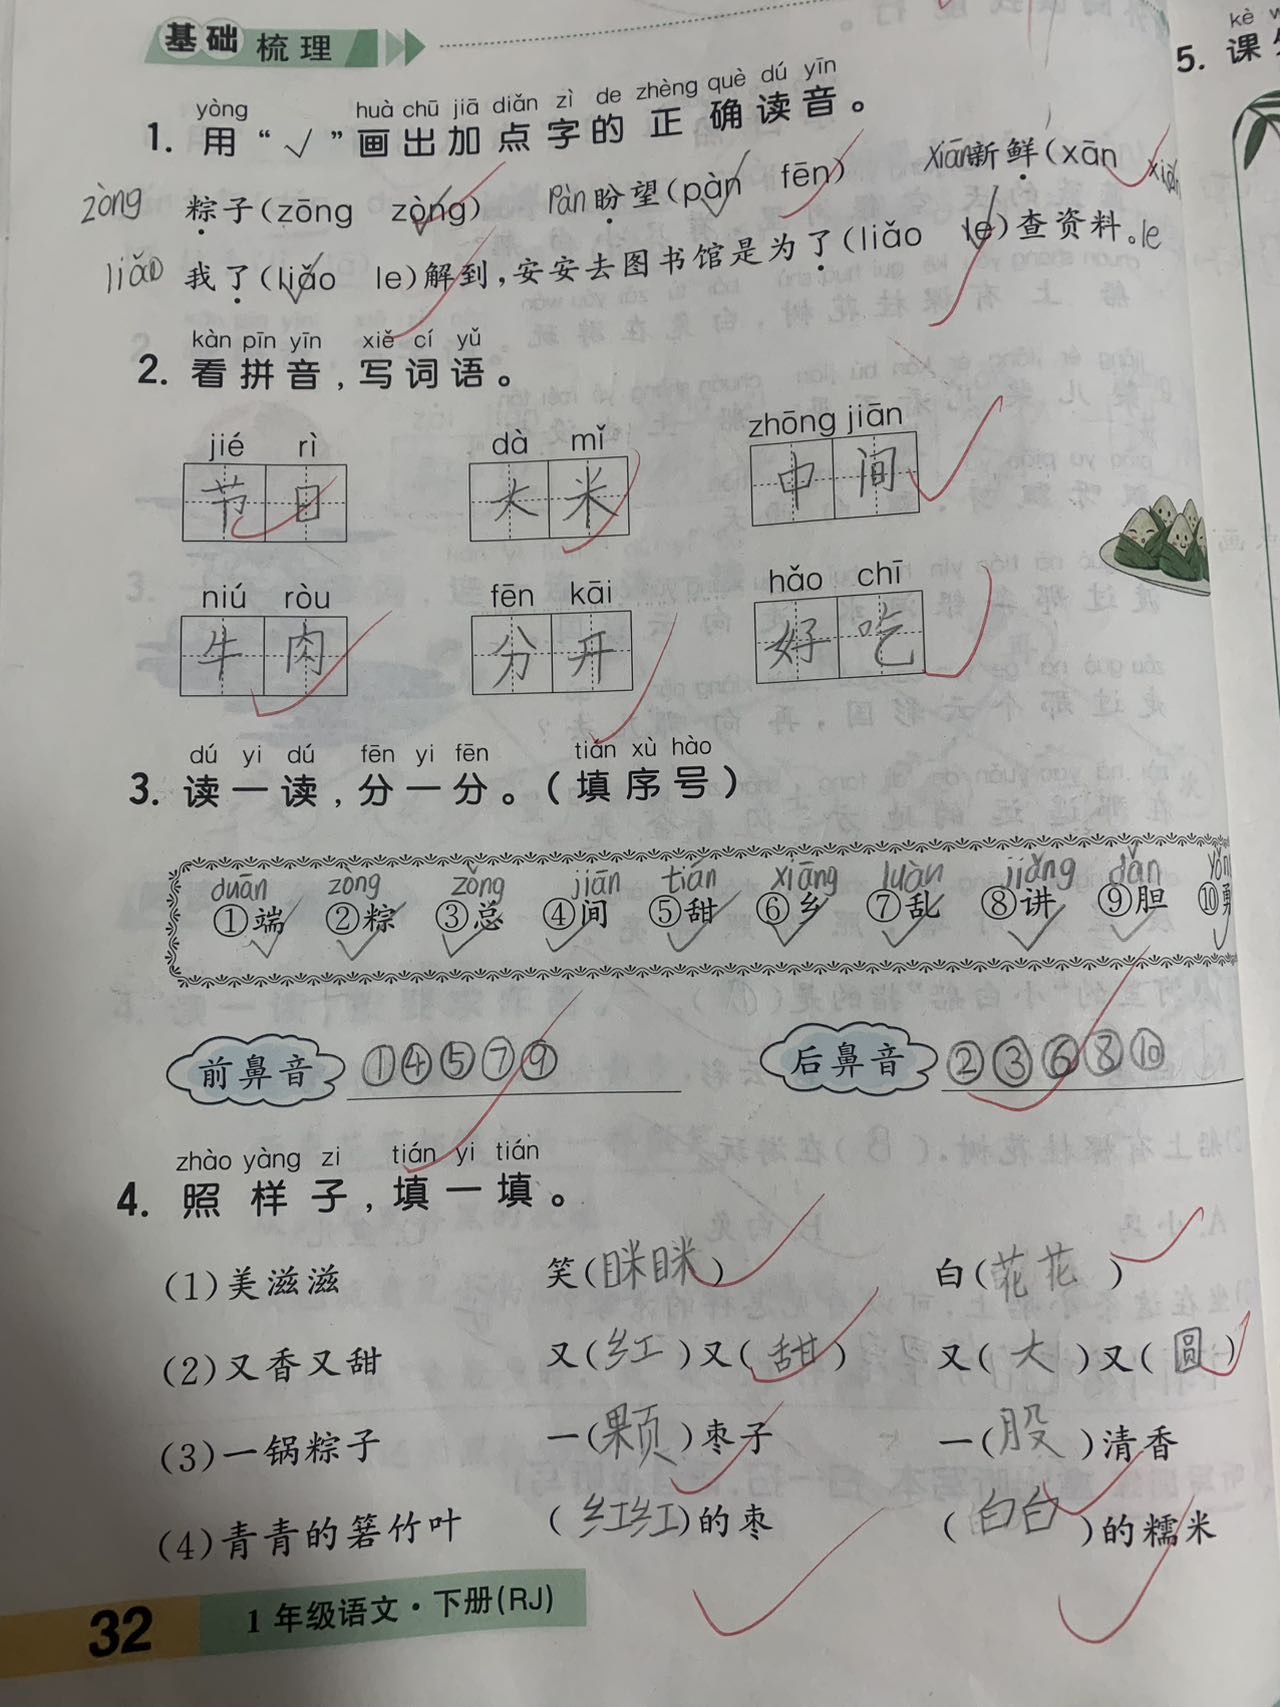 基础梳理
yòng huà chū jiā diǎn zì de zhèng què dú yīn
1. 用“√”画出加点字的正确读音。
zòng 粽子(zōng zòng) pàn 盼望(pàn fēn) xiān 新鲜(xān xiān
liǎo 我了(liǎo le)解到,安安去图书馆是为了(liǎo le)查资料。le
kàn pīn yīn xiě cí yǔ
2. 看拼音,写词语。
jié rì dà mǐ zhōng jiān
节日 大米 中间
niú ròu fēn kāi hǎo chī
牛肉 分开 好吃
dú yi dú fēn yi fēn tián xù hào
3. 读一读,分一分。(填序号)
duān zòng zǒng jiān tián xiāng luàn jiǎng dǎn
①端 ②粽 ③总 ④间 ⑤甜 ⑥乡 ⑦乱 ⑧讲 ⑨胆 ⑩勇
前鼻音 ①④⑤⑦⑨ 后鼻音 ②③⑥⑧⑩
zhào yàng zi tián yi tián
4. 照样子,填一填。
(1)美滋滋 笑(眯眯) 白(花花)
(2)又香又甜 又(红)又(甜) 又(大)又(圆)
(3)一锅粽子 一(颗)枣子 一(股)清香
(4)青青的箬竹叶 (红红)的枣 (白白)的糯米
32 1年级语文·下册(RJ)
kè
5. 课